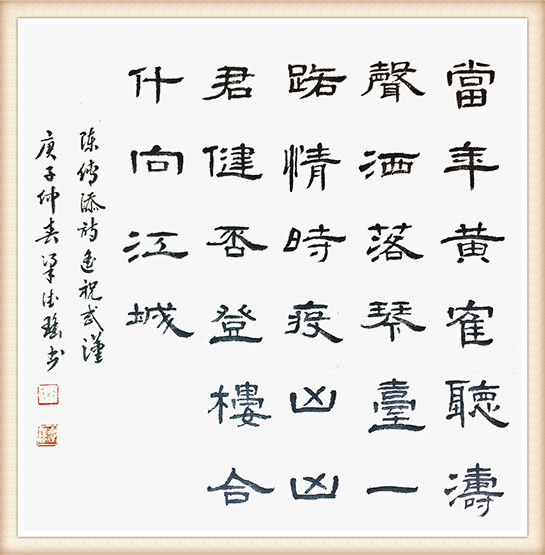 當年黃寉聽濤
聲洒落琴臺一
路情時疫凶凶
君健否登樓合
什向江城
陈添詩遥祝武漢
庚子仲春梁书